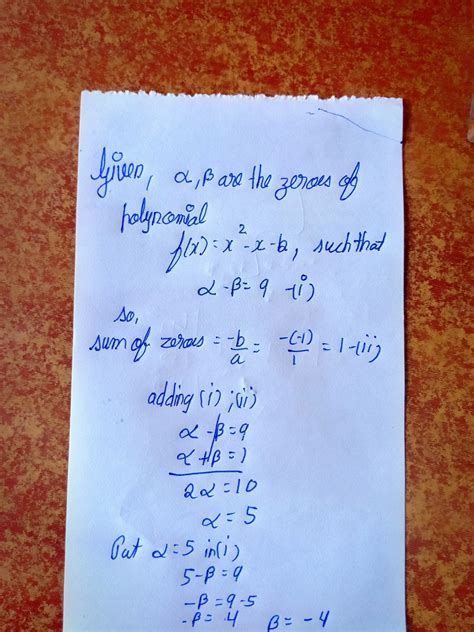 Given, α, β are the zeroes of
polynomial
f(x) = x² - x - k, such that
α - β = 9 -(i)
so,
sum of zeroes = -b/a = -(-1)/1 = 1 -(ii)
adding (i) ; (ii)
α - β = 9
α + β = 1
2α = 10
α = 5
Put α = 5 in (i)
5 - β = 9
-β = 9 - 5
-β = 4 β = -4